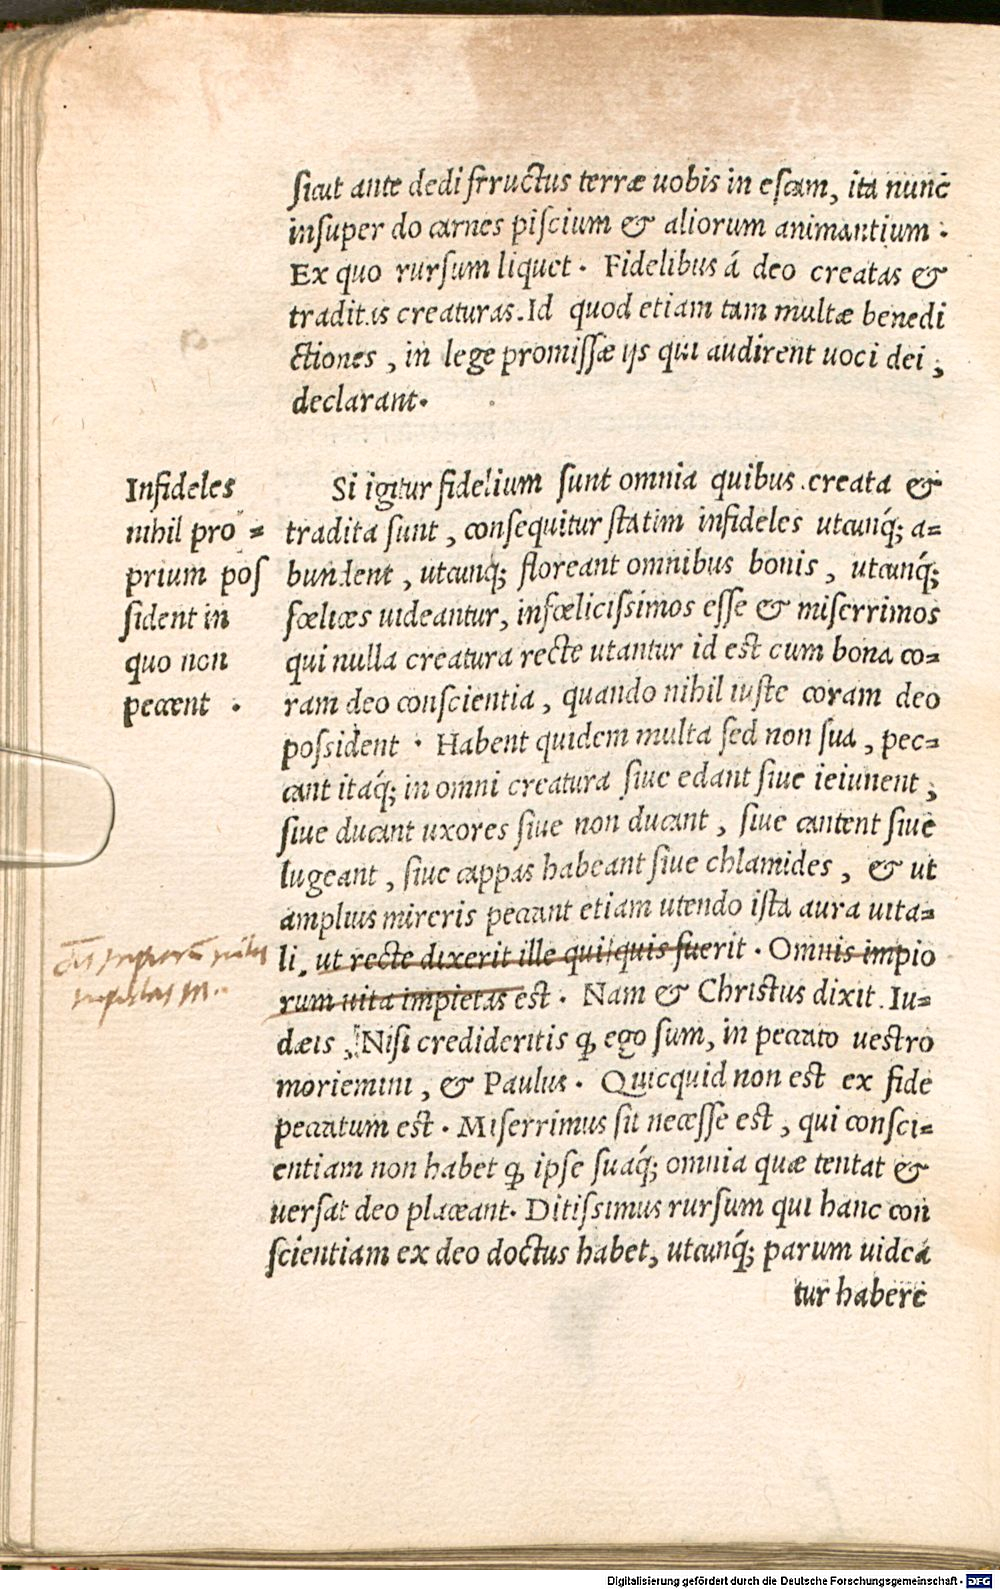 sicut ante dedi fructus terræ uobis in escam, ita nunc
insuper do carnes piscium & aliorum animantium .
Ex quo rursum liquet . Fidelibus á deo creatas &
traditas creaturas. Id quod etiam tam multæ benedi
ctiones , in lege promissæ ijs qui audirent uoci dei ,
declarant.
Infideles
nihil pro =
prium pos
sident in
quo non
peccent .
Si igitur fidelium sunt omnia quibus creata &
tradita sunt , consequitur statim infideles utcunq́; a=
bundent , utcunq́; floreant omnibus bonis , utcunq́;
fœlices uideantur, infœlicissimos esse & miserrimos
qui nulla creatura recte utantur id est cum bona co=
ram deo conscientia , quando nihil iuste coram deo
possident . Habent quidem multa sed non sua , pec=
cant itaq́; in omni creatura siue edant siue ieiunent ,
siue ducant uxores siue non ducant , siue cantent siue
lugeant , siue cappas habeant siue chlamides , & ut
amplius mireris peccant etiam utendo ista aura uita=
li, ut recte dixerit ille quisquis fuerit . Omnis impio
rum uita impietas est . Nam & Christus dixit Iu=
dæis , Nisi credideritis ꝙ ego sum, in peccato uestro
moriemini , & Paulus . Quicquid non est ex fide
peccatum est . Miserrimus sit necesse est , qui consci=
entiam non habet ꝙ ipse suaq́; omnia quæ tentat &
uersat deo placeant. Ditissimus rursum qui hanc con
scientiam ex deo doctus habet, utcunq́; parum uidea
tur habere
Digitalisierung gefördert durch die Deutsche Forschungsgemeinschaft - DFG